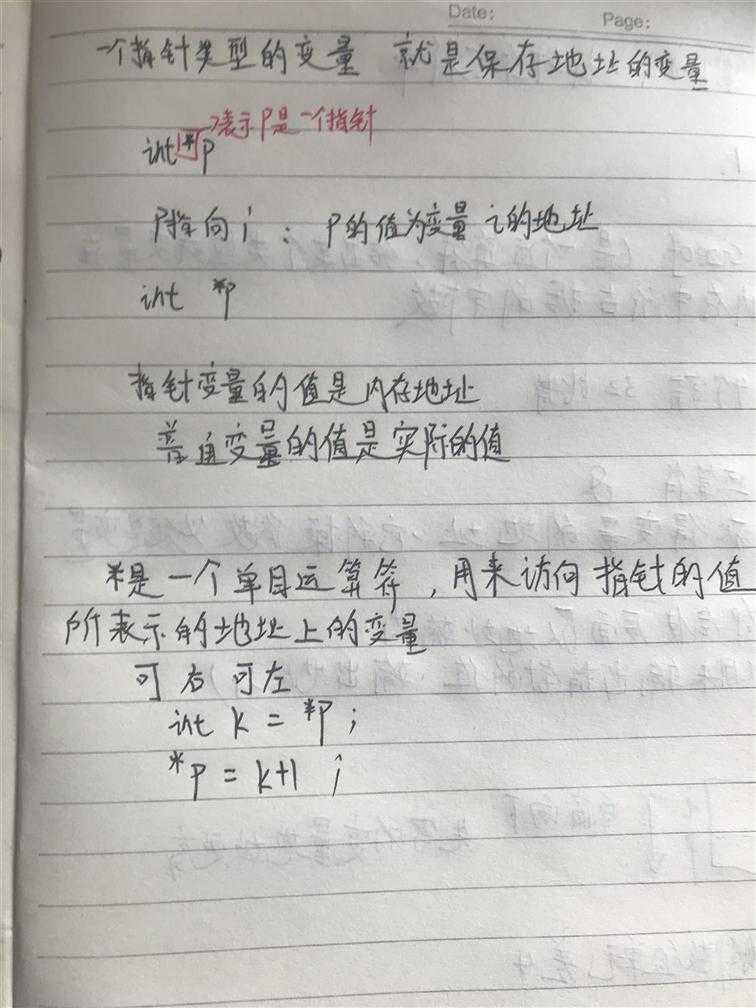 Date:
Page:
一个指针类型的变量 就是保存地址的变量
表示P是一个指针
int * p
P指向i : P的值为变量 i的地址
int *p
指针变量的值是内存地址
普通变量的值是实际的值
*是一个单目运算符,用来访问指针的值
所表示的地址上的变量
可右可左
int k = *p ;
*p = k+1 ;